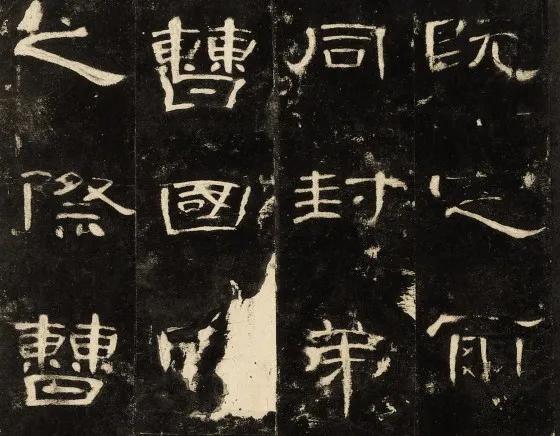 既定爾
同封弟
曹國
之際曹